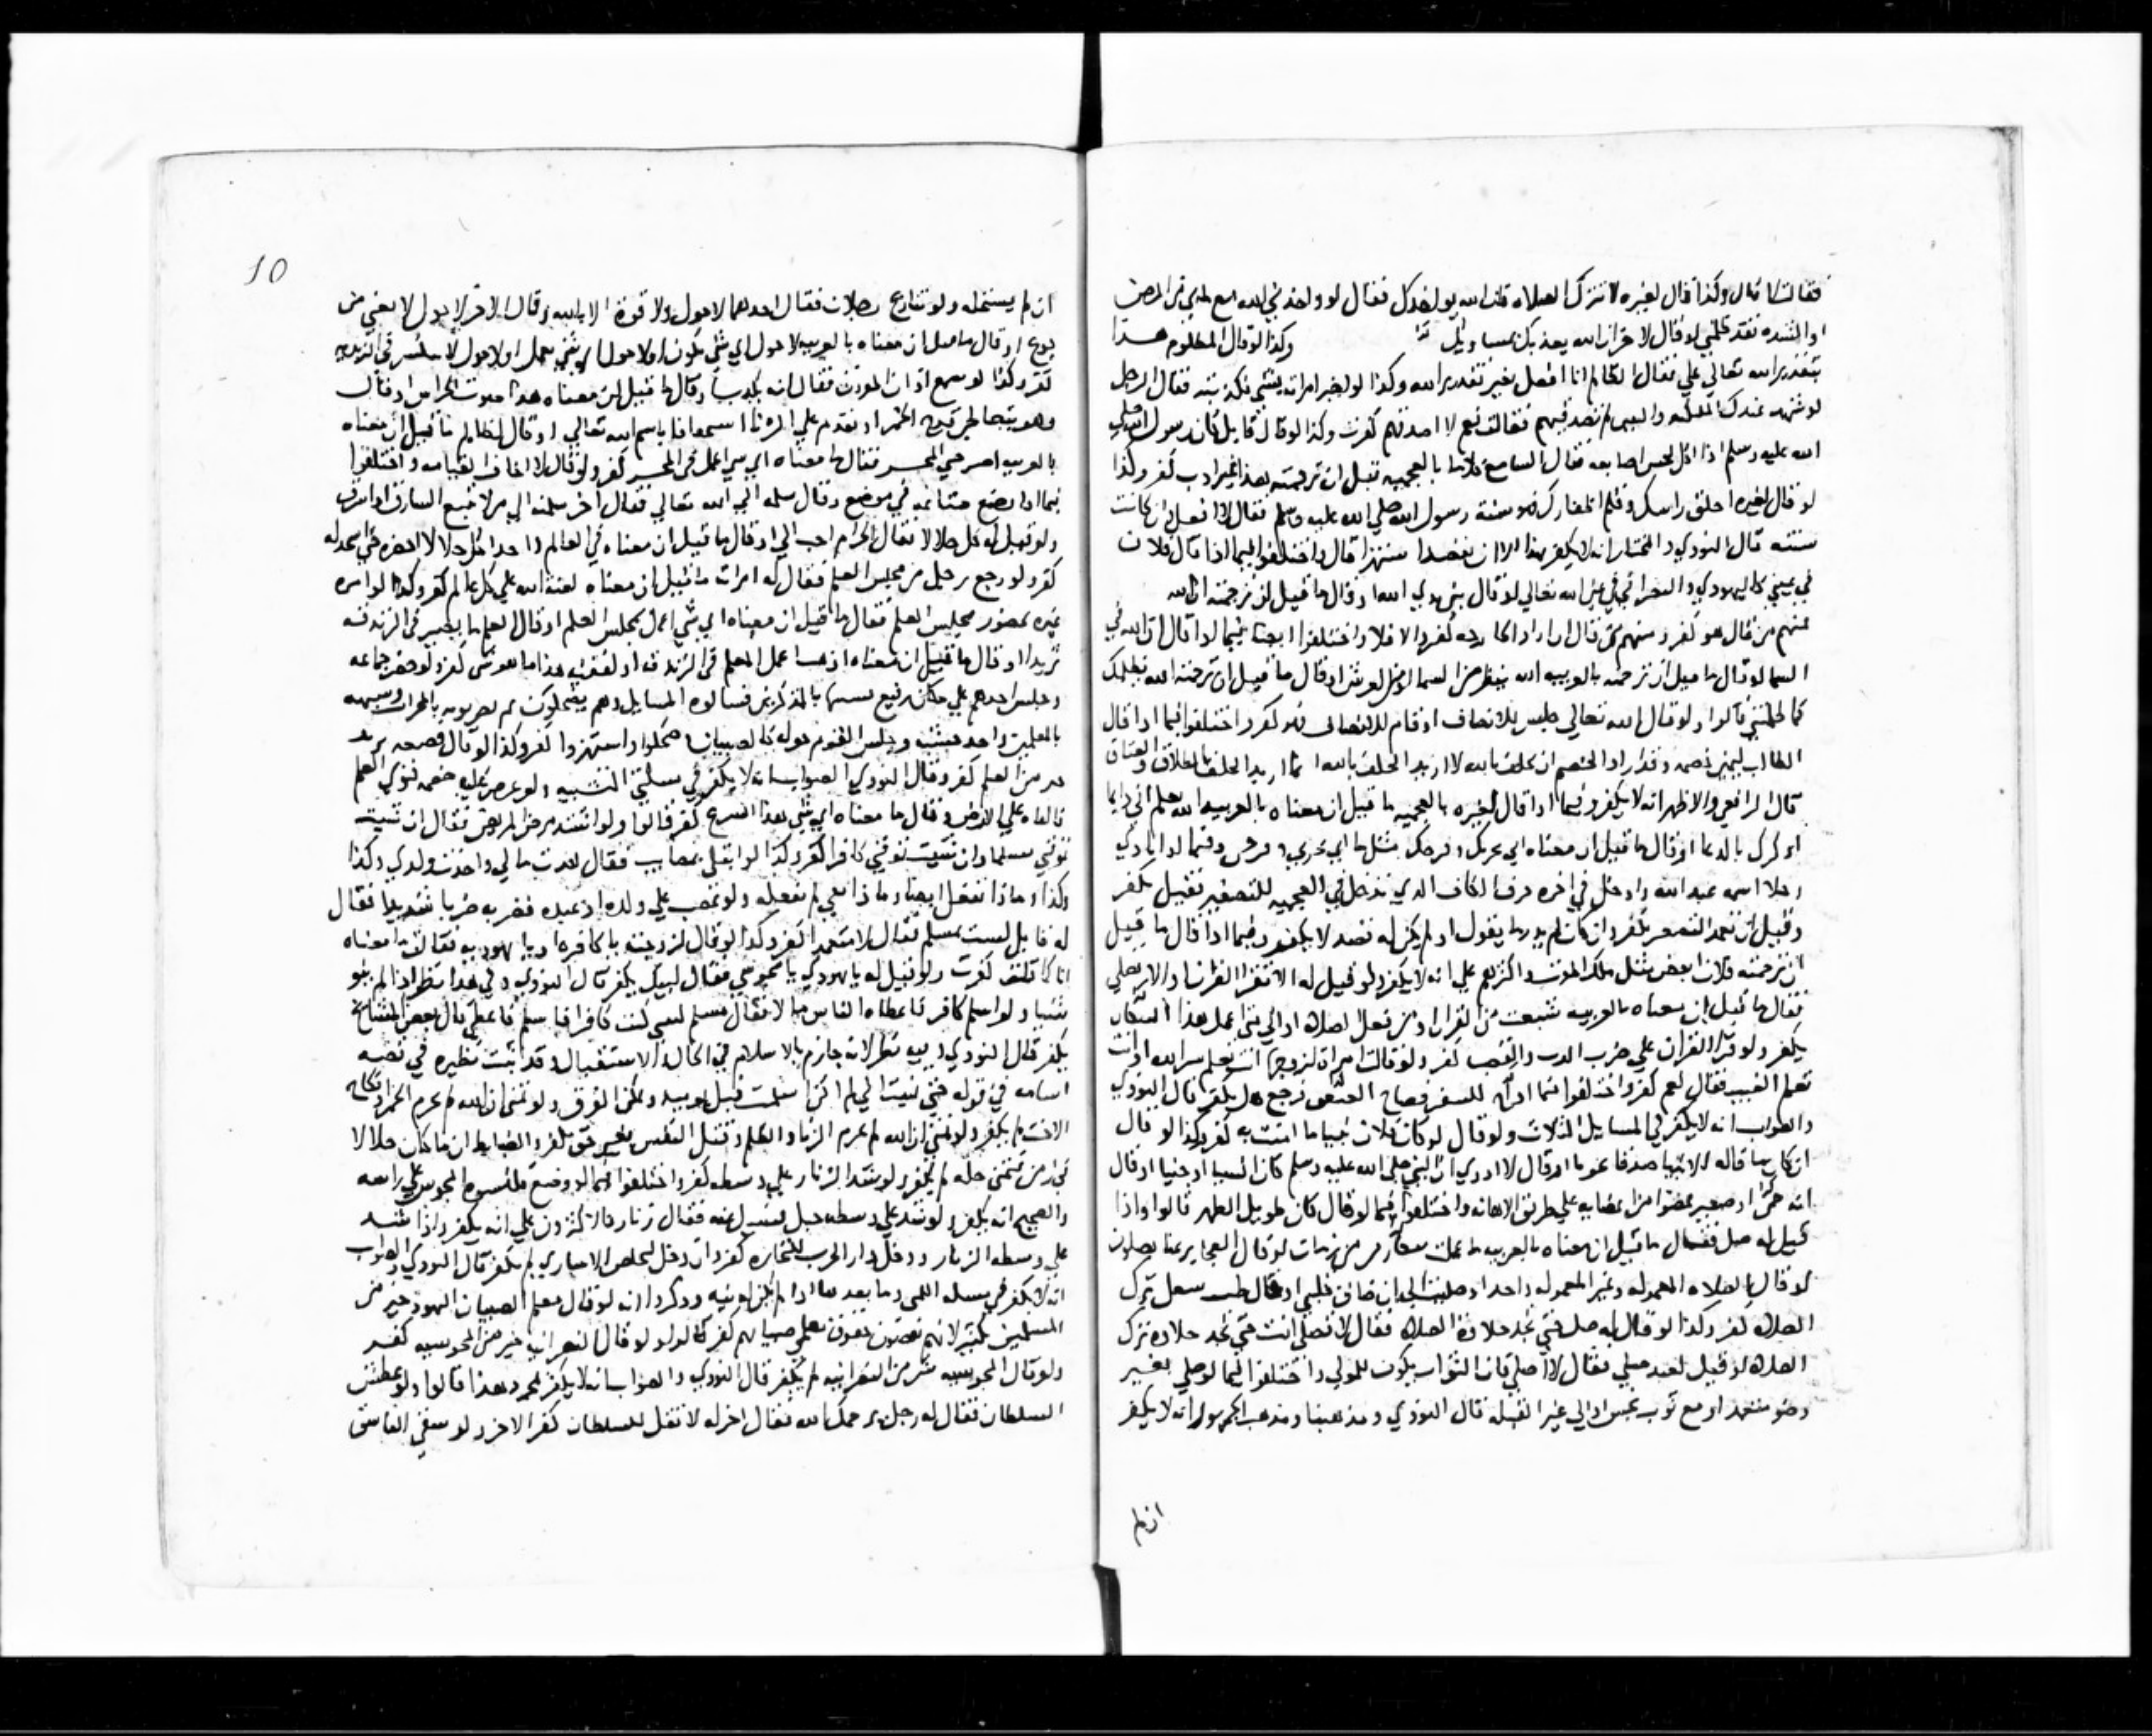 فقالت لا قال وكذا قال لغيره لا تترك الصلاة فان الله يواخذك فقال لو واخذني الله مع ما بي من المرض
او الشده فقد ظلمني لو قال لاخر ان الله يعذبك وكذا لو قال المظلوم هذا
بتقدير الله تعالي علي فقال الظالم انا افعل بغير تقدير الله وكذا لو اخبر امراته بشي فكذبته فقال الرجل
لو شهد عندك الملايكه والنبيون لم تصدقيهم فقالت نعم لا اصدقهم كفرت وكذا لو قال قايل كان رسول الله صلي
الله عليه وسلم اذا اكل لحس اصابعه فقال السامع كلاما بالعجميه فقيل ان ترجمته هذا غير ادب كفر وكذا
لو قال لغيره احلق راسك وقلم اظفارك فانه سنة رسول الله صلي الله عليه وسلم فقال لا افعل وان كانت
سنته قال النووي والمختار انه لا يكفر بهذا الا ان يقصد استهزا قال واختلفوا فيما اذا قال فلان
في عيني كاليهودي والنصراني في عين الله تعالي لو قال بين يدي الله او قال ما قيل ان ترجمته
فمنهم من قال هو كفر ومنهم من قال ان اراد الجارحه كفر والا فلا واختلفوا ايضا فيما لو قال ان الله في
السما لو قال ما قيل ان ترجمته بالعربيه الله ينظر من السما او من العرش او قال ما قيل ان ترجمته الله يظلمك
كما ظلمتني قالوا ولو قال الله تعالي جلس للانصاف او قام للانصاف فهو كفر واختلفوا فيما اذا قال
الطالب ليمين خصمه وقد اراد الخصم ان يحلف بالله لا اريد الحلف بالله انما اريد الحلف بالطلاق والعتاق
قال الرافعي والاظهر انه لا يكفر وفيما اذا قال لغيره بالعجميه ما قيل ان معناه بالعربيه الله يعلم اني دايما
اذكرك بالدعا او قال ما قيل ان معناه اني بحزنك وفرحك مثل ما اني بحزني وفرحي وفيما لو نادي
رجلا اسمه عبد الله وادخل في اخره حرف الكاف الذي تدخل في العجميه للتصغير فقيل يكفر
وقيل ان تعمد التصغير يكفر وان كان لم يدر ما يقول او لم يكن له قصد لا يكفر وفيما اذا قال ما قيل
ان ترجمته فلان ابغض مثل ملك الموت واكثرهم علي انه لا يكفر ولو قيل له الا تقرا القران او الا تصلي
فقال ما قيل ان معناه بالعربيه شبعت من القران او من فعل الصلاة او الي متي اعمل هذا
يكفر ولو قرا القران علي ضرب الدف والقصب كفر ولو قالت امراة لزوجها انت تعلم سر الله او انت
تعلم الغيب فقال نعم كفر واختلفوا فيما اذا للسفر فصاح العقعق فرجع هل يكفر قال النووي
والصواب انه لا يكفر في المسايل الثلاث ولو قال لو كان فلان نبيا ما امنت به كفر وكذا لو قال
ان كان ما قاله الانبيا صدقا نجونا او قال لا ادري ان النبي صلي الله عليه وسلم كان انسيا او جنيا او قال
انه جن او صغر عضوا من اعضايه علي طريق الاهانه واختلفوا فيما لو قال كان طويل الظفر قالوا واذا
قيل له صل فقال ما قيل ان معناه بالعربيه العجايز عنا يصلون
لو قال الصلاه المعموله وغير المعموله واحد او صليت الي ان ضاق قلبي او قال ترك
الصلاه كفر وكذا لو قال له صل حتي تجد حلاوة الصلاه فقال لا تصلي انت حتي تجد حلاوة ترك
الصلاه لو قيل لعبد صلي فقال لا اصلي فان الثواب يكون للمولي واختلفوا فيما لو صلي بغير
وضو متعمدا او مع ثوب نجس او الي غير القبله قال النووي ومذهبنا ومذهب الجمهور انه لا يكفر
ان لم
10
ان لم يستحله ولو تنازع رجلان فقال احدهما لا حول ولا قوة الا بالله وقال الاخر لا حول لا يغني من
جوع او قال ما قيل ان معناه بالعربيه لا حول اي شي يكون او لا حول اي شي يعمل او لا حول لا
كفر وكذا لو سمع اذان الموذن فقال انه يكذب او قال ما قيل ان معناه هذا صوت الجرس او قال
وهو يتعاطي قدح الخمر او يقدم علي الزنا استخفافا باسم الله تعالي او قال لظالم ما قيل ان معناه
بالعربيه اصبر الي المحشر فقال ما معناه اي شي اعمل في المحشر كفر ولو قال لا اخاف القيامه واختلفوا
فيما اذا وضع متاعه في موضع وقال سلمته الي الله تعالي فقال اخر سلمته الي من لا يتبع السارق اذا سرق
ولو قيل له كل حلالا فقال الحرام احب الي او قال ما قيل ان معناه في العالم واحد اكل حلالا احضره حتي اسجد له
كفر ولو رجع رجل من مجلس العلم فقال له امراته ما قيل ان معناه لعنة الله علي كل عالم كفر وكذا لو امره
غيره بحضور مجلس العلم فقال ما قيل ان معناه اي شي اعمل بمجلس العلم او قال العلم ما
ثريدا او قال ما قيل ان معناه اذهب اعمل العلم في الزندقه او لفقيه هذا ما هو شي كفر ولو حضر جماعه
وجلس احدهم علي مكان رفيع تشبيها بالمذكرين فسالوه المسايل وهم يضحكون ثم يضربونه بالمخراق وتشبيهه
بالمعلمين واخذ خشبه وجلس القوم حوله كالصبيان وضحكوا واستهزوا كفر وكذا لو قال قصعه ثريد
خير من العلم كفر وقال النووي الصواب انه لا يكفر في مسالتي التشبيه ولو عرض عليه خصمه فتوي العلم
فالقاه علي الارض وقال ما معناه اي شي هذا الشرع كفر قالوا ولو اشتد مرض المريض فقال ان شيت
توفني مسلما وان شيت توفني كافرا كفر وكذا لو ابتلي بمصايب فقال اخذت مالي واخذت ولدي وكذا
وكذا وماذا تفعل ايضا وماذا بقي لم تفعله ولو غضب علي ولده او عبده فضربه ضربا شديدا فقال
له قايل لست بمسلم فقال لا متعمدا كفر وكذا لو قال لزوجته يا كافره او يا يهوديه فقالت ما معناه
انا كما قلت كفرت ولو قيل له يا يهودي يا مجوسي فقال لبيك يكفر قال النووي وفي هذا نظر اذا لم ينو
شيا ولو اسلم كافر فاعطاه الناس مالا فقال مسلم ليتني كنت كافرا فاسلم فاعطي قال بعض المشايخ
يكفر قال النووي وفيه نظر لانه جازم بالاسلام في الحال والاستقبال وقد ثبت نظيره في قصة
اسامه في قوله حتي تمنيت اني لم اكن اسلمت قبل يوميذ ويمكن الفرق ولو تمني ان الله لم يحرم الخمر او نكاح
الاخت لم يكفر ولو تمني ان الله لم يحرم الزنا والظلم وقتل النفس بغير حق كفر والضابط ان ما كان حلالا
في زمن فتمني حله لم يكفر ولو شد الزنار علي وسطه كفر واختلفوا فيما لو وضع قلنسوة المجوس علي راسه
والصحيح انه يكفر ولو شد علي وسطه حبل فسيل عنه فقال زنار فالاكثرون علي انه يكفر واذا شد
علي وسطه الزنار ودخل دار الحرب للتجاره كفر وان دخل لتخليص الاساري لم يكفر قال النووي والصواب
انه لا يكفر في مسالة التمني وما بعدها اذا لم يكن له نيه وذكروا انه لو قال معلم الصبيان اليهود خير من
المسلمين بكثير لانهم يقضون حقوق معلمي صبيانهم كفر قالوا ولو قال النصرانيه خير من المجوسيه كفر
ولو قال المجوسيه شر من النصرانيه لم يكفر قال النووي والصواب انه لا يكفر بمجرد هذا قالوا ولو عطش
السلطان فقال له رجل يرحمك الله فقال اخر له لا تقل للسلطان كفر الاخر ولو سقي الفاسق